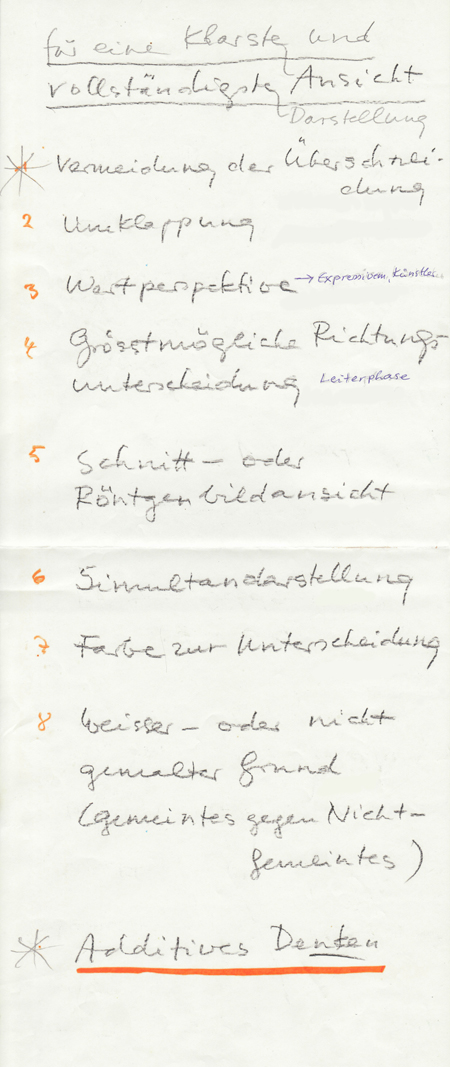 für eine Klarste und
vollständigste Ansicht
Darstellung
1 Vermeidung der Überschnei-
dung
2 Umklappung
3 Wertperspektive → Expressionism, Künstler..
4 Grösstmögliche Richtungs-
unterscheidung Leiterphase
5 Schnitt- oder
Röntgenbildansicht
6 Simultandarstellung
7 Farbe zur Unterscheidung
8 Weisser- oder nicht
gemalter Grund
(gemeintes gegen Nicht-
gemeintes)
Additives Denken